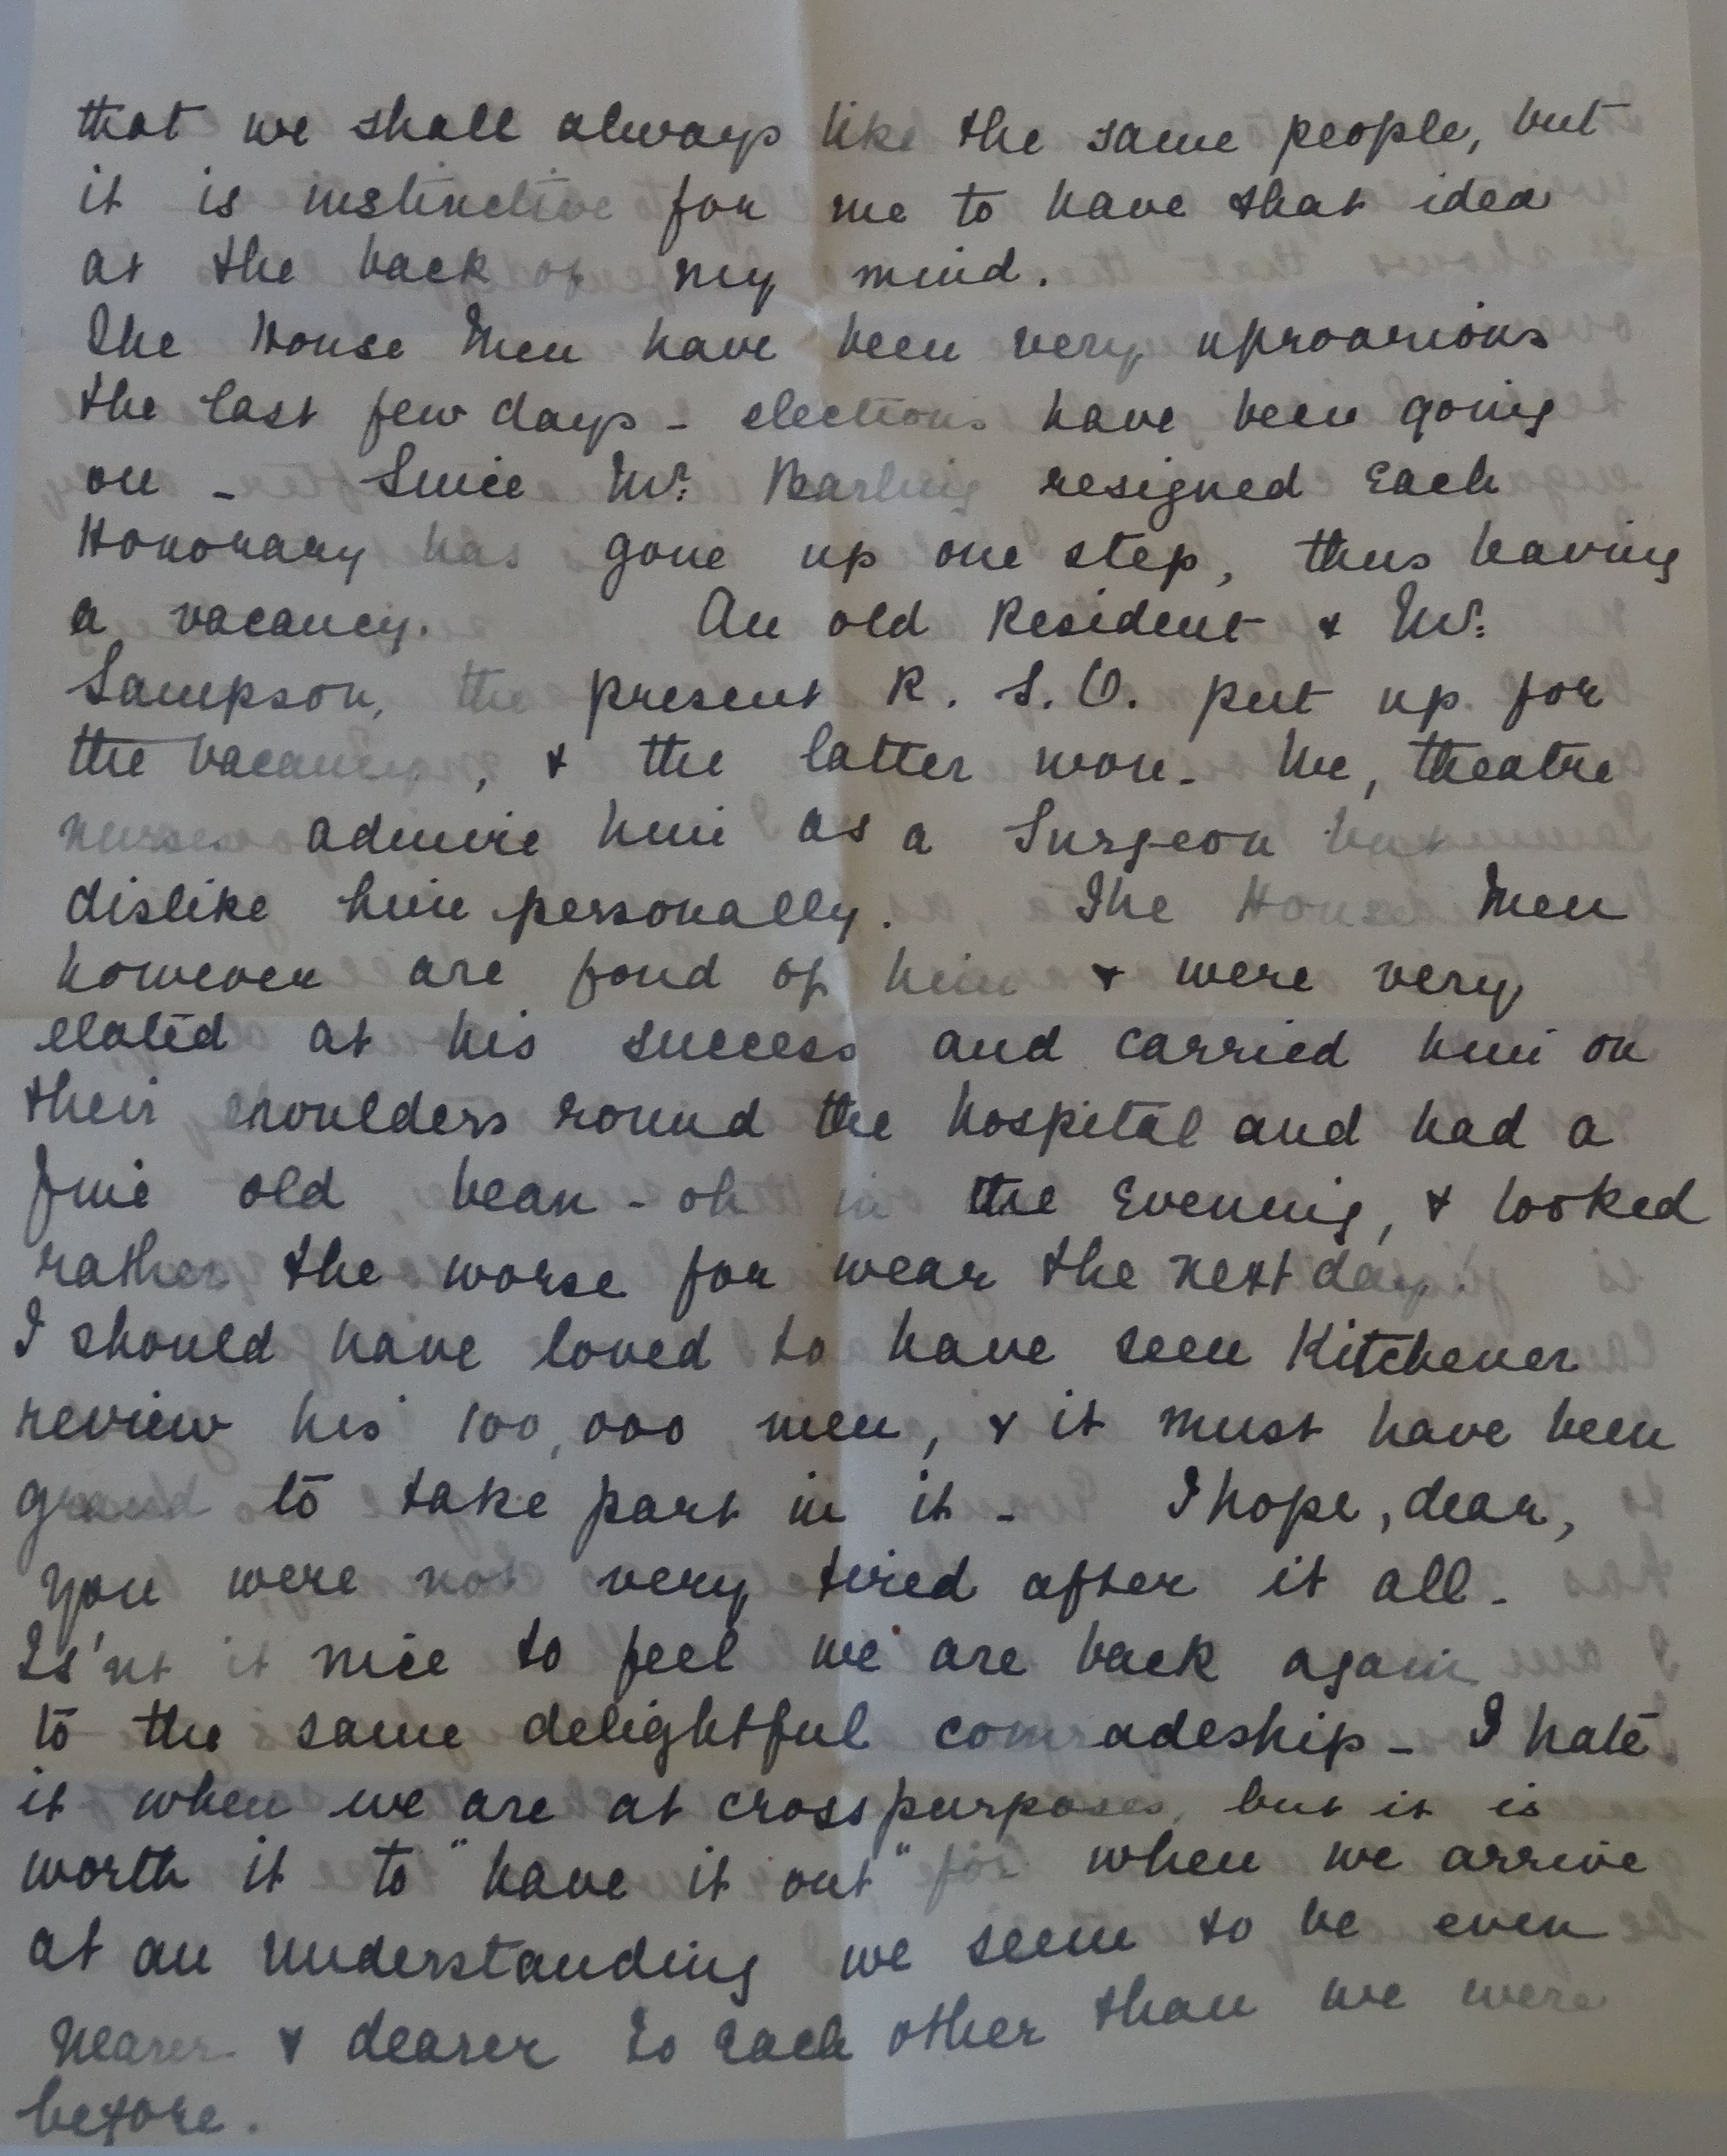 that we shall always like the same people, but
it is instinctive for me to have that idea
at the back of my mind.
The House Men have been very uproarious
the last few days - elections have been going
on - Since Mr. Barling resigned Each
Honorary has gone up one step, thus leaving
a vacancy. An old Resident & Mr.
Sampson, the present R. S. O. put up for
the vacancy, & the latter won - We, theatre
nurses admire him as a Surgeon but
dislike him personally. The House Men
however are fond of him & were very
elated at his success and carried him on
their shoulders round the hospital and had a
fine old bean-oh in the Evening, & looked
rather the worse for wear the next day.
I should have loved to have seen Kitchener
review his 100,000 men, & it must have been
grand to take part in it - I hope, dear,
you were not very tired after it all -
Is'nt it nice to feel we are back again
to the same delightful comradeship - I hate
it when we are at cross purposes, but it is
worth it to "have it out" for when we arrive
at an understanding we seem to be even
nearer & dearer to each other than we were
before.